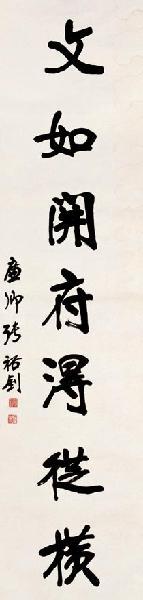 文如開府得從橫
廉卿張裕釗